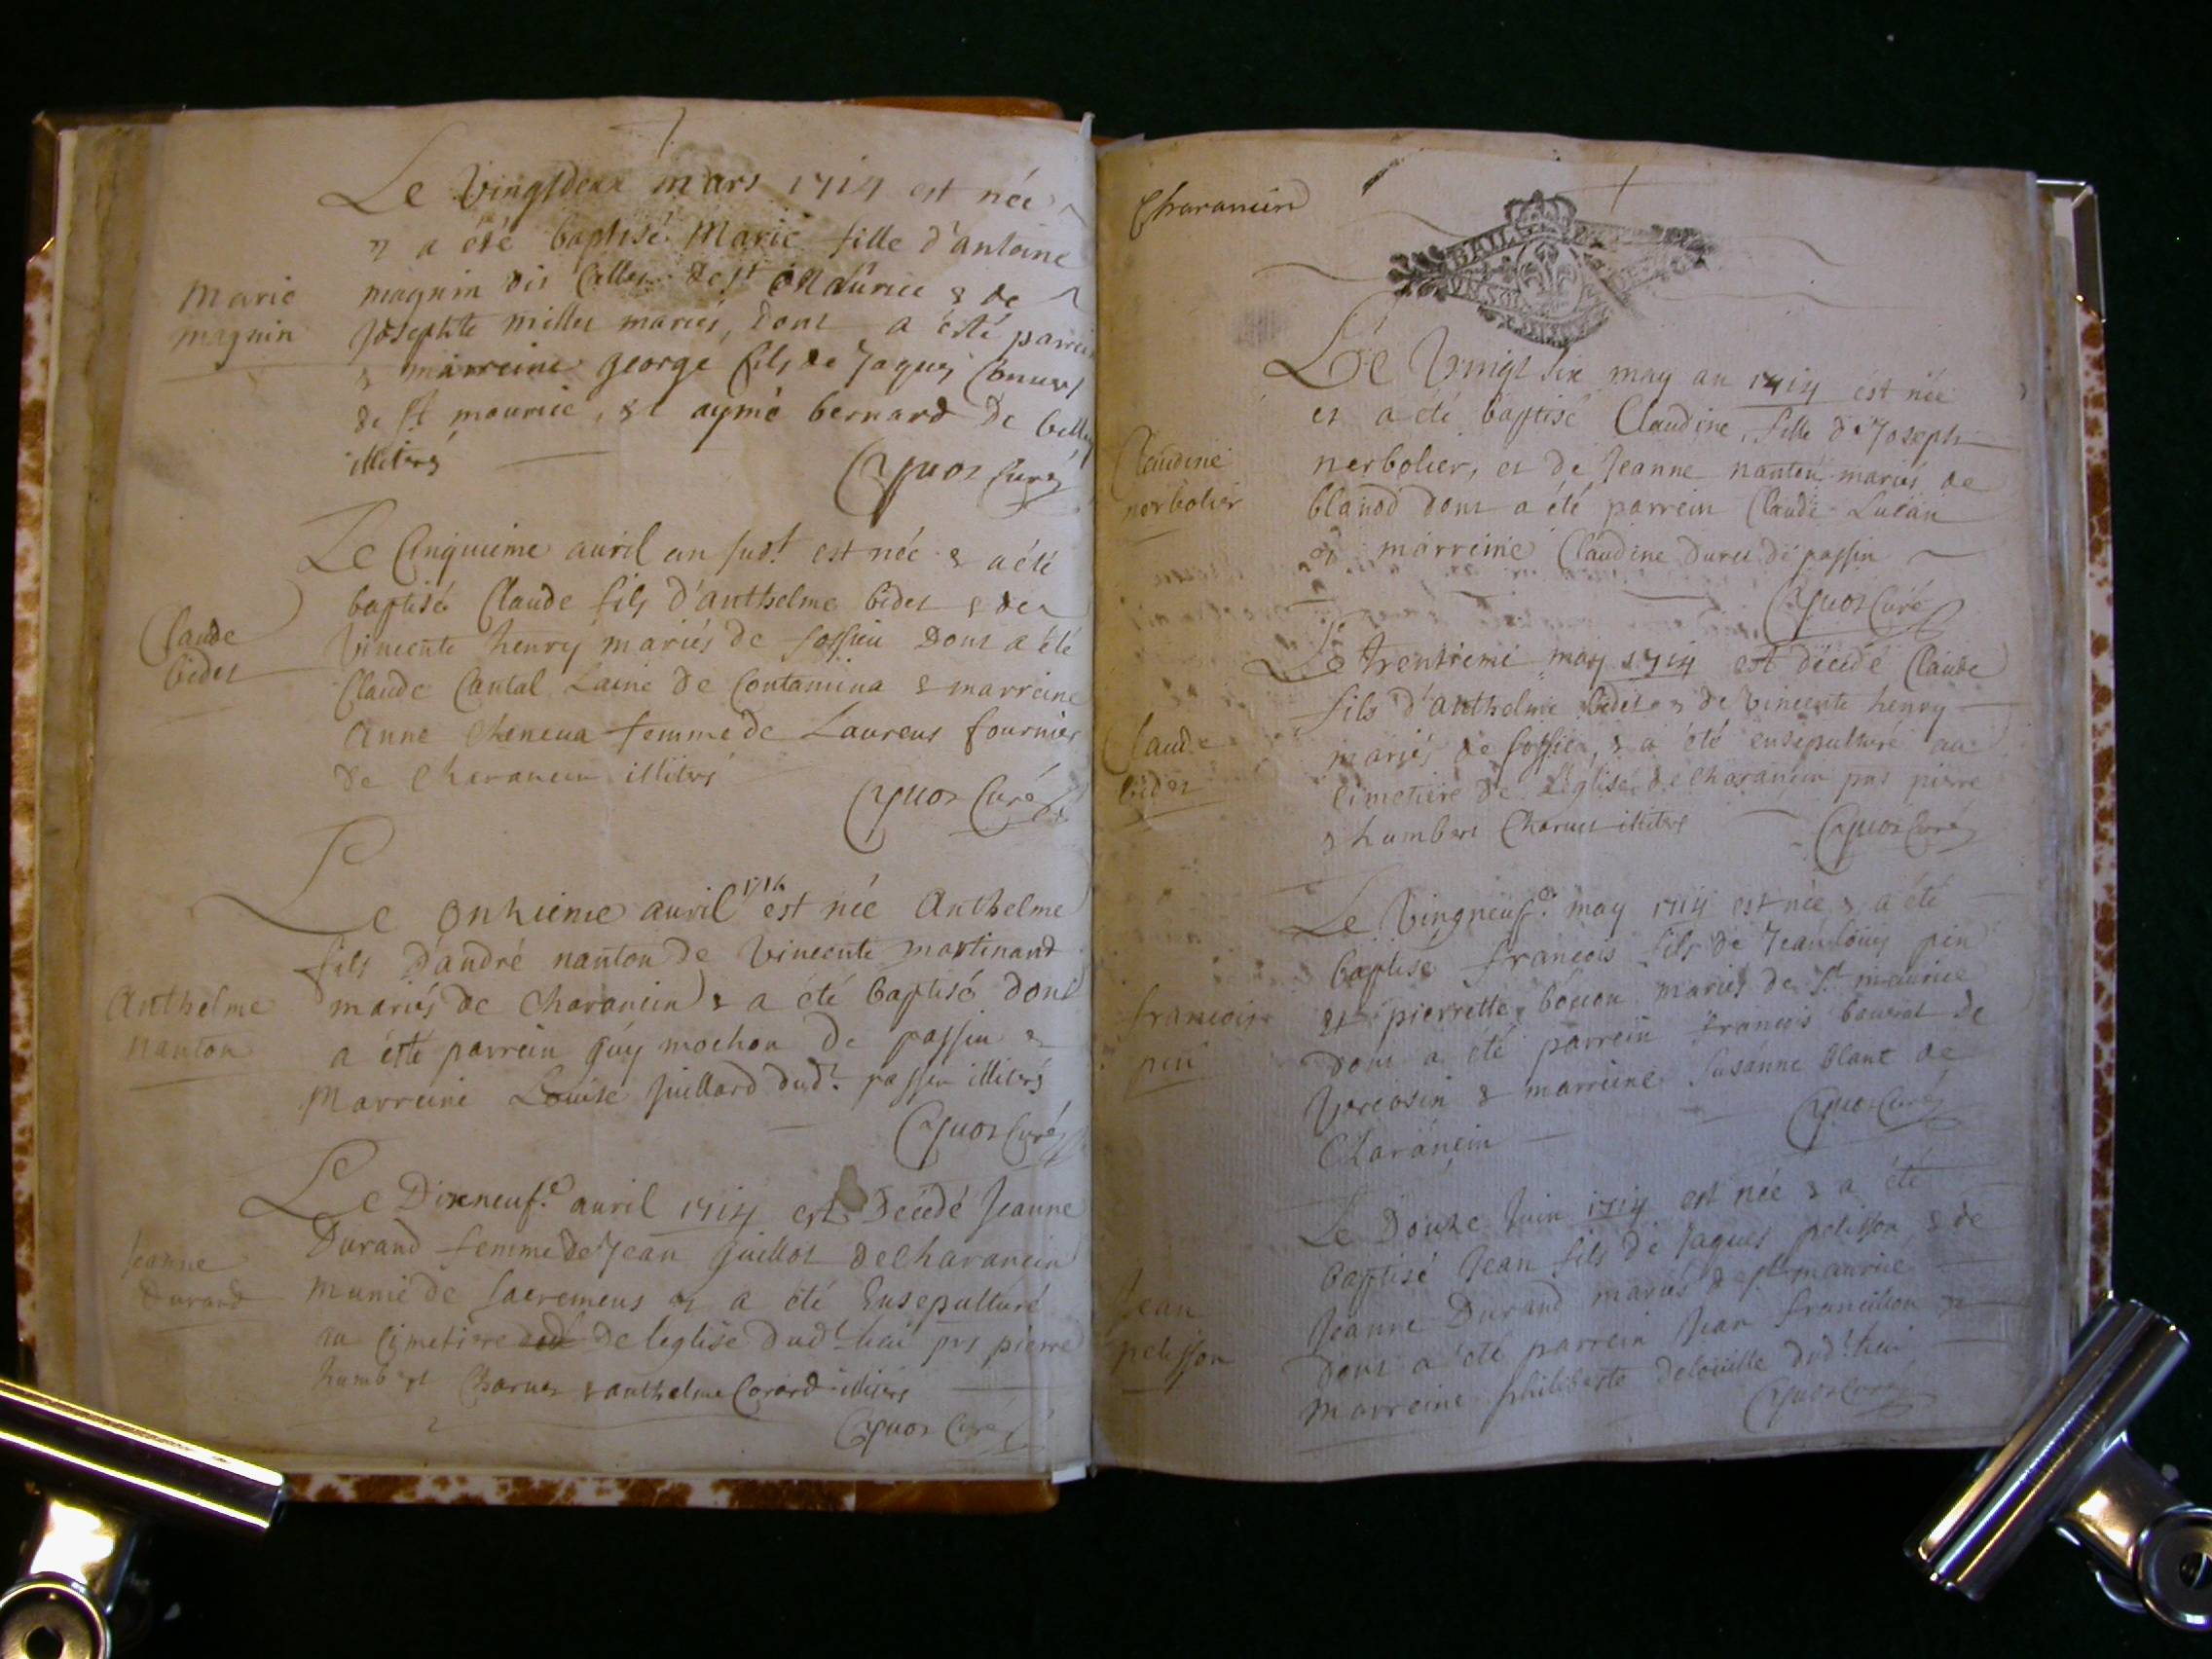 Le Vingtdeux mars 1714 est née
& a été baptisé Marie fille d'antoine
Marie
magnin
magnin dit de St Maurice & de
Josephte millet mariés, dont a été parrein
& marreine george fils de Jaques
de St maurice, & aymé bernard de
illiterés
Cyuoz Curé
Le Cinquieme auril an sudt est née & a été
baptisé Claude fils d'anthelme bidet & de
Claude
bidet
Vincente henry mariés de sossieu Dont a été
Claude Cantal Lainé de Contamina & marreine
Anne Cheneua femme de Laurens fournier
de Charancin illiterés
Cyuoz Curé
Le Onzieme auril 1714 est née Anthelme
fils d'andré nanton de Vincente martinand
Anthelme
nanton
mariés de Charancin & a été baptisé dont
a été parrein guy mochon de passin &
Marreine Louise Juillard dudt passin illiterés
Cyuoz Curé
Le Dixneufe auril 1714 est Décédé Jeanne
Jeanne
Durand
Durand femme de Jean Juillot de Charancin
munie de sacremens & a été Ensepulturé
au Cimetiere de leglise dudt lieu prs pierre
humbert Charuet & anthelme illiterés
Cyuoz Curé
Charancin
BAIL
Le Vingt six may an 1714 est née
et a été baptisé Claudine, fille de Joseph
Claudine
nerbolier
nerbolier, et de Jeanne nanton mariés de
dont a été parrein Claude
& marreine Claudine Duret de passin
Cyuoz Curé
Le trentieme may 1714 est décédé Claude
Claude
bidet
fils d'anthelme bidet & de Vincente henry
mariés de sossieu, & a été ensepulturé au
Cimetiere de L'église de Charancin prs pierre
& humbert Charuet illiterés
Cyuoz Curé
Le Vingneufe may 1714 est née & a été
baptisé francois fils de Jean louys pin
francois
pin
et pierrette mariés de St maurice
dont a été parrein francois de
& marreine Susanne blanc de
Charancin
Cyuoz Curé
Le Douze Juin 1714 est née & a été
baptisé Jean fils de Jaques pelisson, & de
Jean
pelisson
Jeanne Durand mariés de St maurice
dont a été parrein Jean francillon &
marreine philiberte dudt lieu
Cyuoz Curé